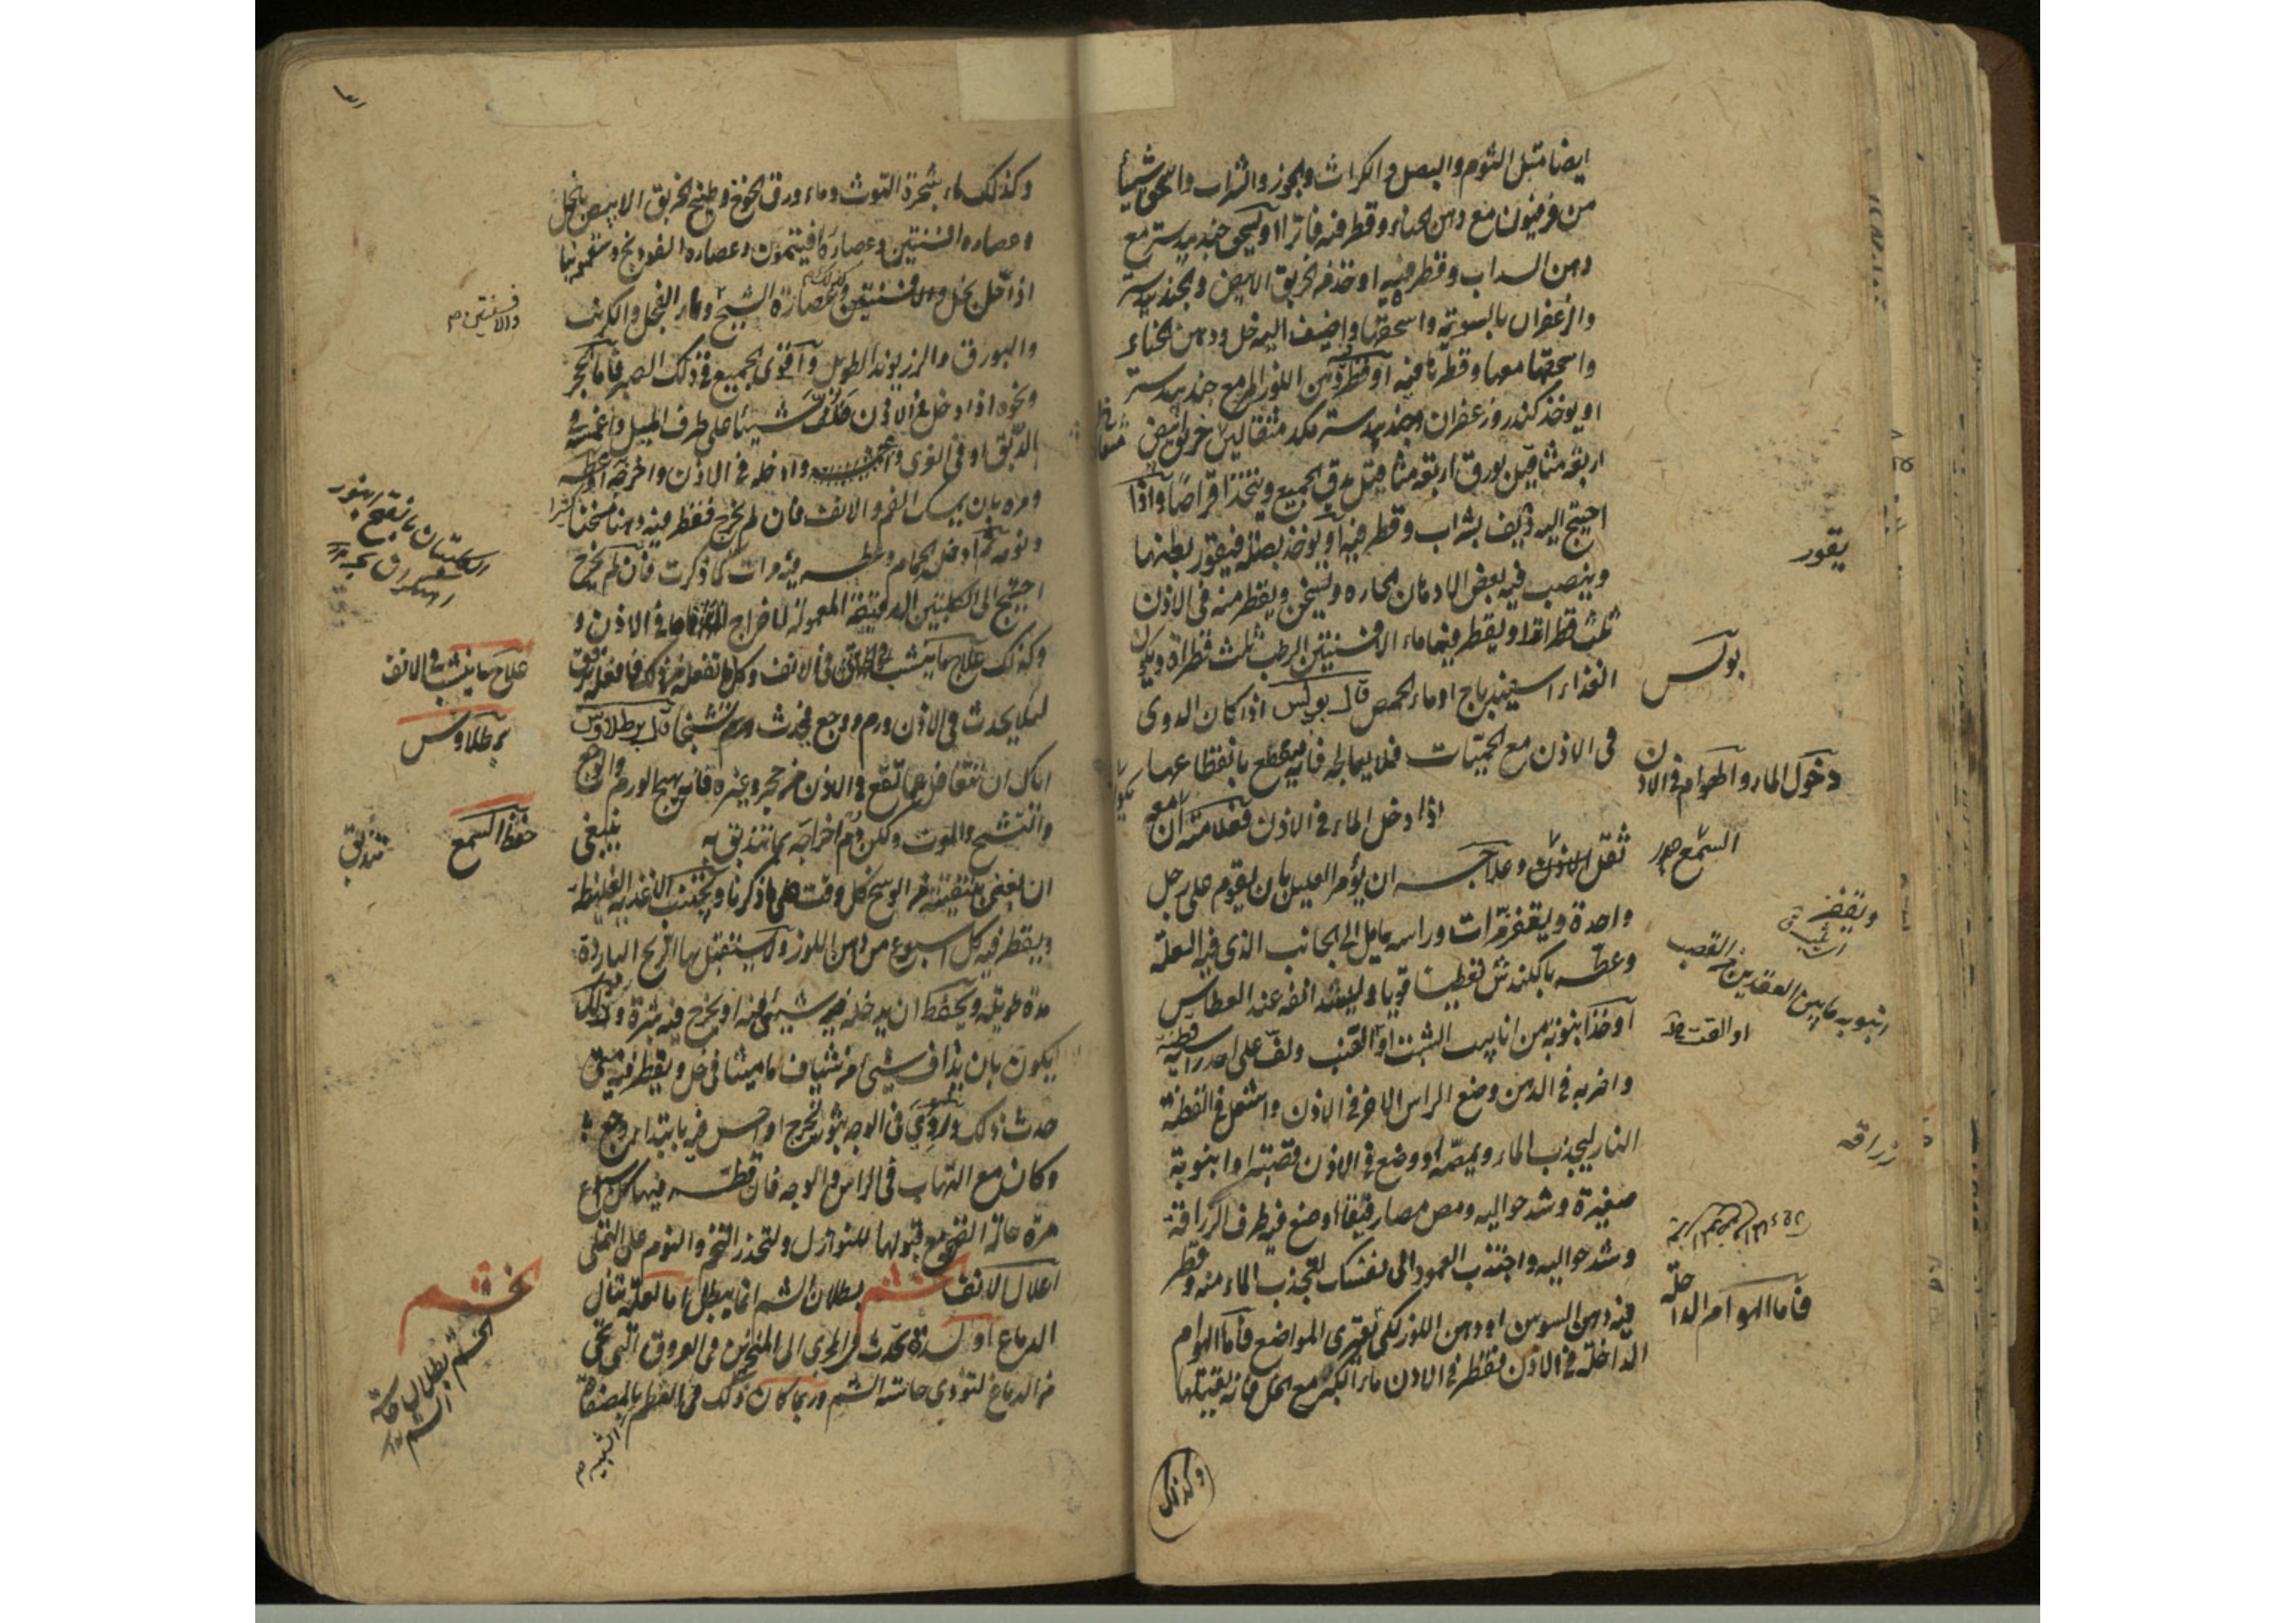 ايضا مثل الثوم والبصل والكراث والجوز والشراب واسحق شيئا
من فرفيون مع دهن الحناء وقطر فيه فاترا او يسحق جندبيدستر مع
دهن السداب وقطر فيه او خذ من الخربق الابيض والجندبيدستر
والزعفران بالسوية واسحقها واضيف اليه خل ودهن الحناء
واسحقها معها وقطرها فيه او قطر دهن اللوز المر مع جندبيدستر
او يوخذ كندر وزعفران وجندبيدستر مكد مثقالين خربق ابيض
اربعة مثاقيل بورق اربعة مثاقيل يدق الجميع ويتخذ اقراصا واذا
احتيج اليه ديف بشراب وقطر فيه او يوخذ بصلة فيقور بطنها
وينصب فيه بعض الادهان الحاره ويسخن ويقطر منه في الاذن
ثلث قطرات او يقطر فيها ماء الافسنتين الرطب ثلث قطراة ويكون
الغذاء اسفيذباج او ماء الحمص قال بولس اذا كان الدوى
في الاذن مع الحميات فلا يعالجه فانه ينقطع بانقطاعها
اذا دخل الماء في الاذن فعلامته ان مع
ثقل الاذن وعلاجه ان يؤمر العليل بان يقوم على رجل
واحدة وليقفز مرات وراسه مايل الى الجانب الذي فيه العلة
وعطسه بالكندش تعطيسا قويا وليشد انفه عند العطاس
او خذ انبوبة من انابيب الشبث او القنب ولف على احد راسيه قطنة
واضربه في الدهن وضع الراس الاخر في الاذن واشعل في القطنة
النار ليجذب الماء ويمصه او وضع في الاذن قصبة او انبوبة
صغيرة وشد حواليه ومص مصا رقيقا او ضع فيه طرف الزراقة
وشد حواليه واجتذب العمود الى نفسك لتجذب الماء منه وقطر
فيه دهن السوسن او دهن اللوز لكي تغترى المواضع فاما الهوام
الداخلة في الاذن فقطر في الاذن ماء الكبر مع الخل فانه يقتلها
وكذلك
يقور
بولس
دخول الماء والهوام في الاذن
السمع
ويقفز
انبوبه ما بين العقدين من القصب
او القنب
زراقه
فاما الهوام الداخلة
وكذلك ماء شجرة التوث وماء ورق الخوخ وطبيخ الخربق الابيض بالخل
وعصاره افسنتين وعصاره افيتمون وعصاره الفودنج وسقمونيا
اذا حل بخل والافسنتين وعصارة الشيح وماء الفجل والكرنب
والبورق والزريوند الطويل واقوى الجميع في ذلك الصبر فاما الحجر
ونحوه اذا دخل في الاذن فلف شيئا على طرف الميل واغمسه في
الدبق او في الغرى وادخله في الاذن واخرجه او عطسه
ومره بان يمسك الفم والانف فان لم يخرج فقطر فيه دهنا مسخنا كثيرا
ونومه ثم ادخل الحمام وعطسه فيه مرات كما ذكرت فان لم يخرج
احتيج الى الكلبتين الدقيقة المعمولة لاخراج ما في الاذن و
وكذلك علاج ما ينشب في الانف وكل ما تفعله من ذلك فافعله برفق
لئلا يحدث في الاذن ورم ووجع فيحدث ورم تشنجا قال برطلاوس
اياك ان تتغافل عما تقع في الاذن من حجر وغيره فانه يهيج الورم والوجع
والتشنج والموت ولكن رم اخراجه بما تتذبق به ينبغي
ان يعنى بتنقيته من الوسخ كل وقت على ما ذكرنا ويجتنب الاغذيه الغليظه
ويقطر فيه كل اسبوع من دهن اللوز ولا يستقبل بها الريح الباردة
مدة طويلة ويحفظ ان يدخله فيه شيئ او يخرج فيه بثرة وذلك
يكون بان يذاف شيئ من شياف ماميثا في خل ويقطر فيه متى
حدث ذلك وروي في الوجه بثور تخرج او احس فيه بابتداء وجع
وكان مع التهاب في الراس والوجه فان قطر فيها كل اسبوع
مرة حالة قبولها للنوازل ولتحذر التخم والنوم على التملى
اعلال الانف الخشم بطلان الشم انما يبطل اما لعلة تنال
الدماغ او لسدة تحدث في المجرى الى المنخرين في العروق التي تجي
من الدماغ لتؤدي حاسة الشم وربما كان ذلك في العظم الشبيه بالمصفاة
والافسنتين
علاج ما ينشب في الانف
برطلاوس
حفظ السمع
تتدبق
الخشم
الخشم بطلان حاسة الشم